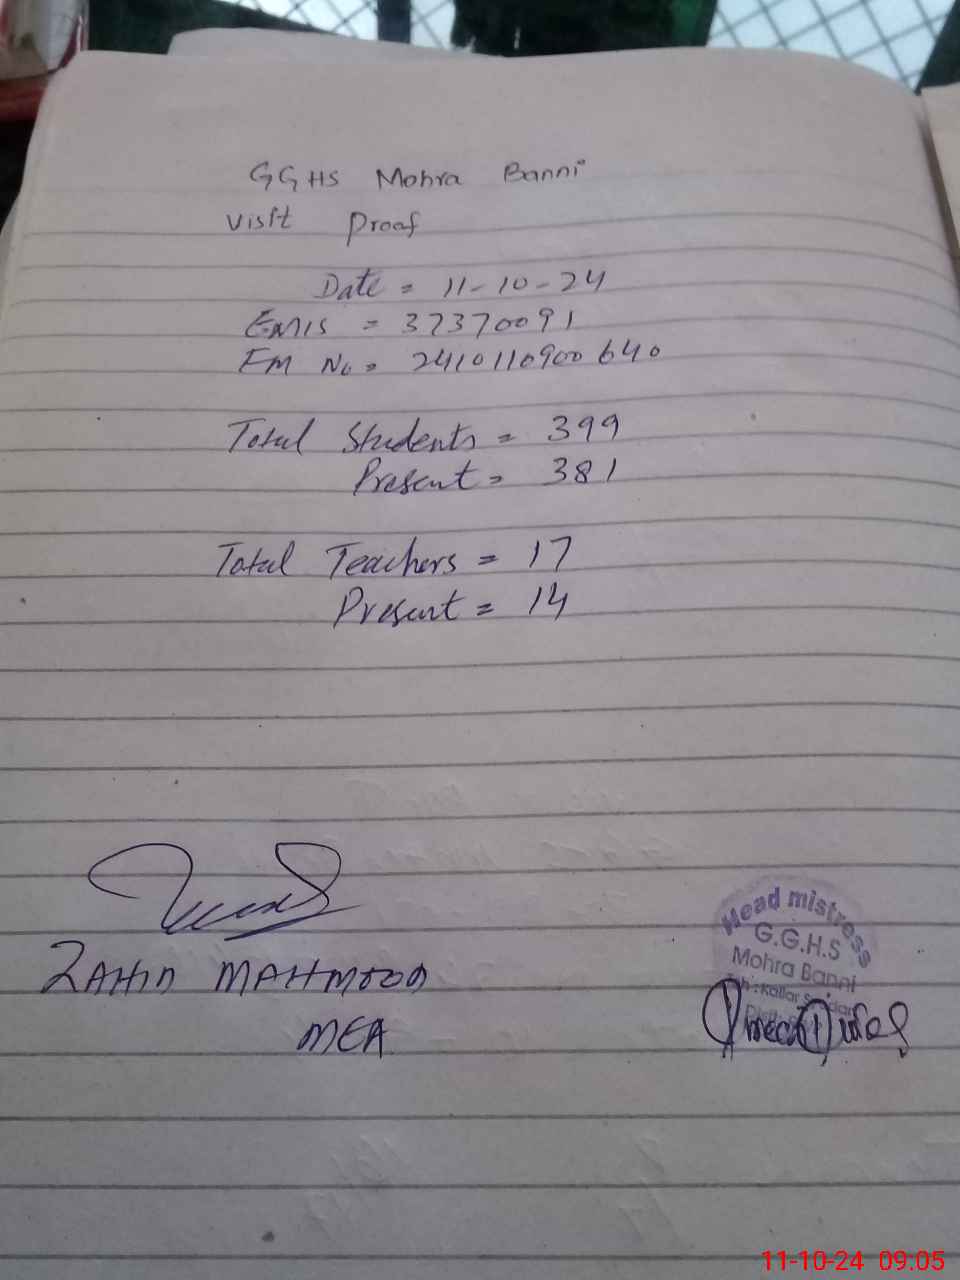 GGHS Mohra Banni
Visit Proof
Date = 11-10-24
EMIS = 37370091
FM No = 2410110900640
Total Students = 399
Present = 381
Total Teachers = 17
Present = 14
ZAHID MAHMOOD
MEA
Head mistress
G.G.H.S
Mohra Banni
Kallar
11-10-24 09.05